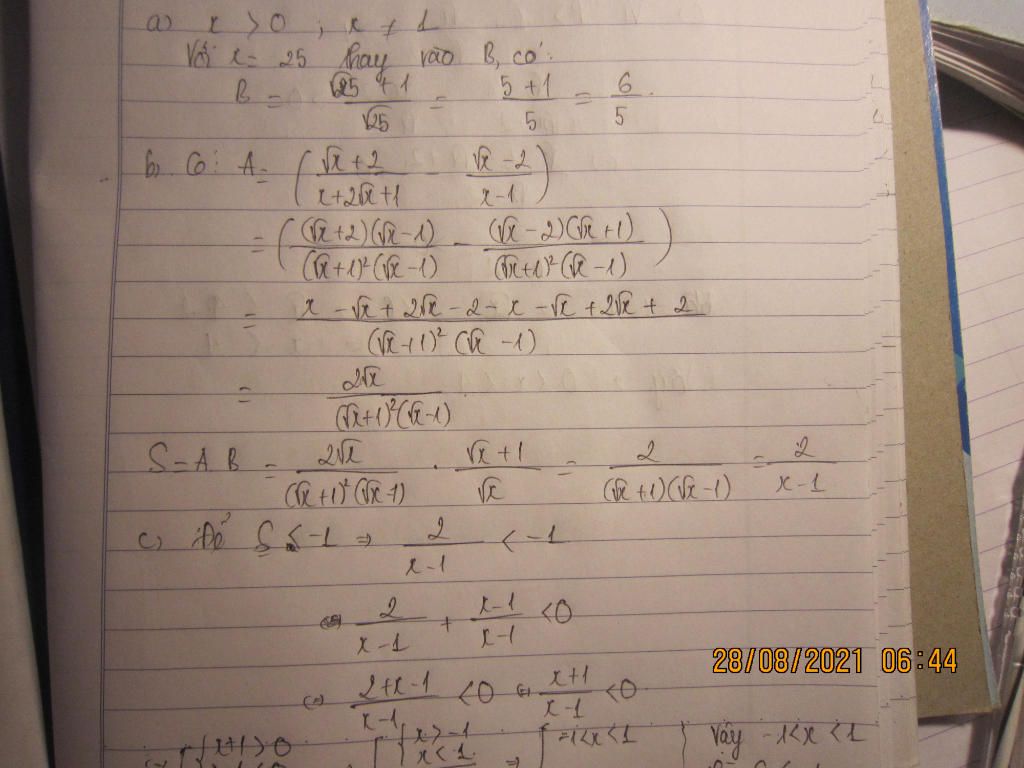 a) x > 0 ; x ≠ 1
Với x = 25 thay vào B, có:
B = (√25 + 1)/√25 = (5 + 1)/5 = 6/5.
b, Có: A = ((√x + 2)/(x + 2√x + 1) - (√x - 2)/(x - 1))
= ((√x + 2)(√x - 1)/((√x + 1)²(√x - 1)) - (√x - 2)(√x + 1)/((√x + 1)²(√x - 1)))
= (x - √x + 2√x - 2 - x - √x + 2√x + 2)/((√x + 1)²(√x - 1))
= 2√x/((√x + 1)²(√x - 1))
S = A B = 2√x/((√x + 1)²(√x - 1)) . (√x + 1)/√x = 2/((√x + 1)(√x - 1)) = 2/(x - 1)
c, Để S < -1 ⇒ 2/(x - 1) < -1
⇔ 2/(x - 1) + (x - 1)/(x - 1) < 0
⇔ (2 + x - 1)/(x - 1) < 0 ⇔ (x + 1)/(x - 1) < 0
⇔ [ { x + 1 > 0 [ { x > -1 x < -1 ⇒ [ -1 < x < 1 } Vậy -1 < x < 1
28/08/2021 06:44